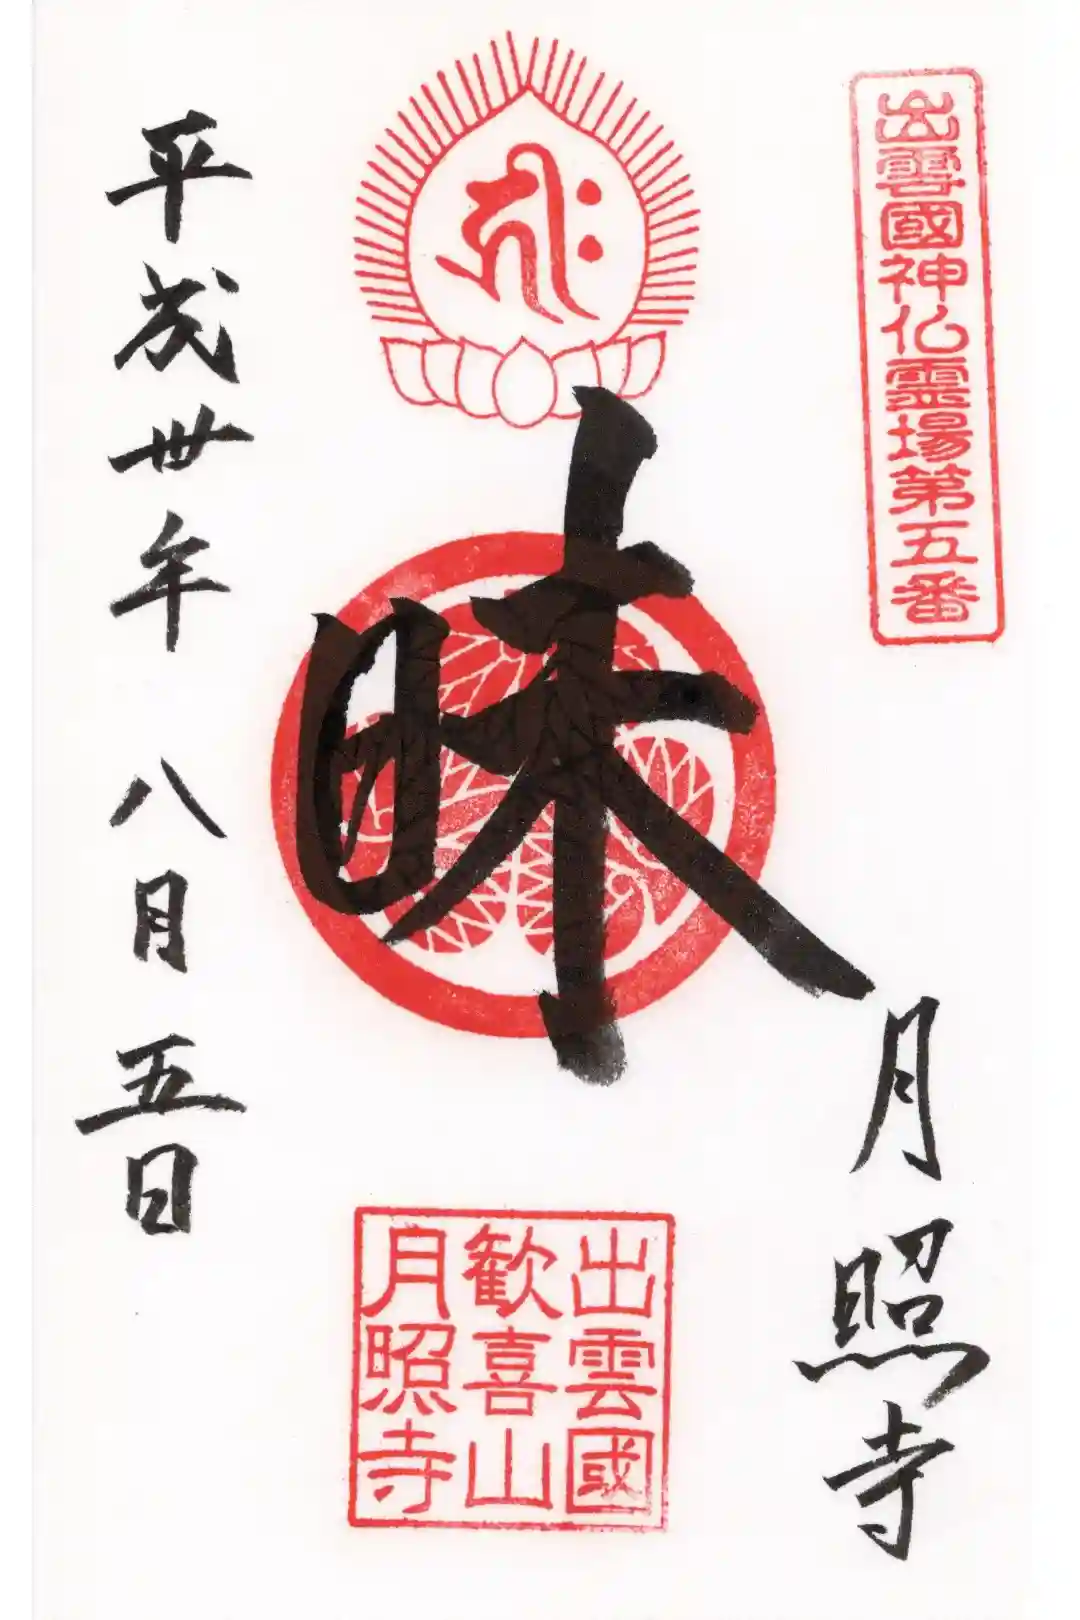 出雲國神仏霊場第五番
月照寺
キリーク
昧
出雲國
歓喜山
月照寺
平成卅年
八月五日